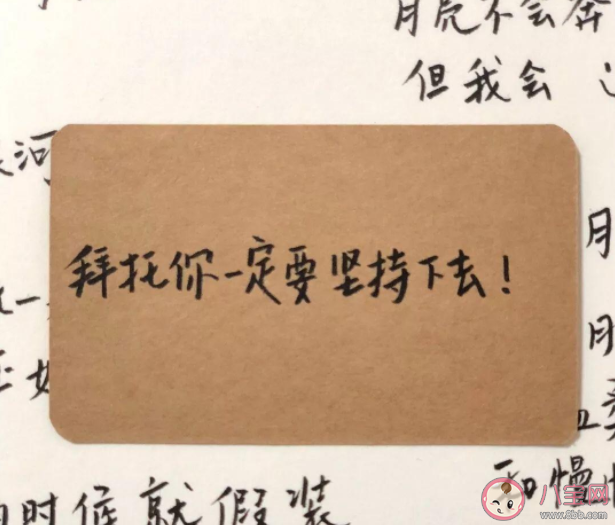 月亮不会奔
但我会
河
拜托你一定要坚持下去！
月
一
月
和慢
时候就假装
八宝网
www.8bb.com